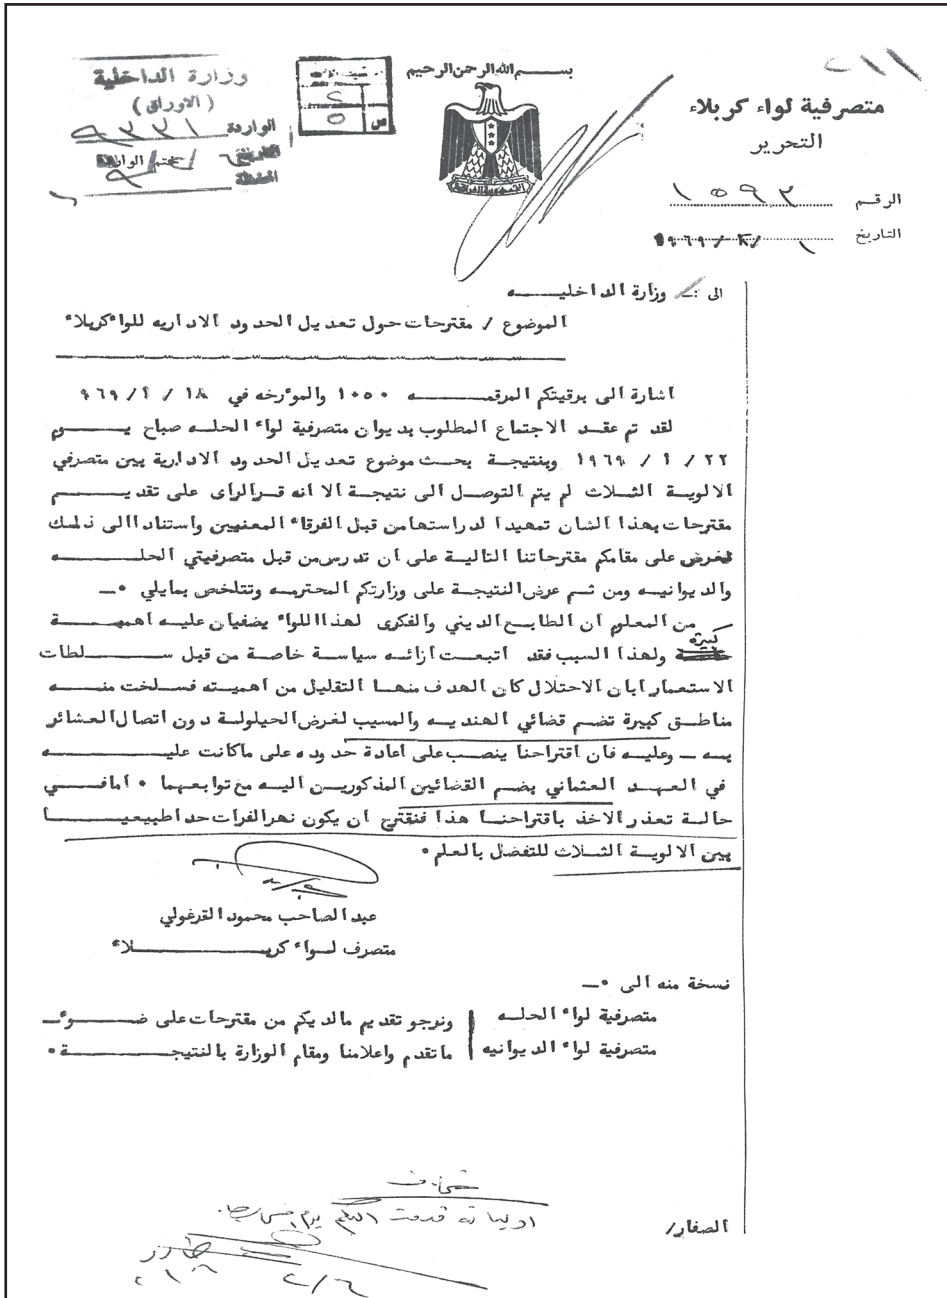 بسم الله الرحمن الرحيم
متصرفية لواء كربلاء
التحرير
الرقم ١٥٩٣
التاريخ ١ / ٢ / ١٩٦٩
وزارة الداخلية
(الاوراق)
الواردة ٩٣٣١
الى :ـ وزارة الداخليـــــه
الموضوع / مقترحات حول تعديل الحدود الاداريه للواء كربلاء
اشارة الى برقيتكم المرقمـــــه ١٠٥٠ والمؤرخه في ١٨ / ١ / ٩٦٩
لقد تم عقد الاجتماع المطلوب بديوان متصرفية لواء الحله صباح يـــوم
٢٢ / ١ / ١٩٦٩ وبنتيجة بحث موضوع تعديل الحدود الادارية بين متصرفي
الالوية الثلاث لم يتم التوصل الى نتيجة الا انه قر الراى على تقديـــم
مقترحات بهذا الشان تمهيدا لدراستها من قبل الفرقاء المعنيين واستنادا الى ذلك
نعرض على مقامكم مقترحاتنا التالية على ان تدرس من قبل متصرفيتي الحلـــــه
والديوانيه ومن ثم عرض النتيجة على وزارتكم المحترمه وتتلخص بمايلي ٠ــ
من المعلوم ان الطابع الديني والفكرى لهذا اللواء يضفيان عليه اهميـــة
كبيرة ولهذا السبب فقد اتبعت ازائه سياسة خاصة من قبل ســـلطات
الاستعمار ابان الاحتلال كان الهدف منها التقليل من اهميته فسلخت منـــه
مناطق كبيرة تضم قضائي الهنديه والمسيب لغرض الحيلولة دون اتصال العشائر
به ــ وعليه فان اقتراحنا ينصب على اعادة حدوده على ماكانت عليـــــه
في العهد العثماني بضم القضائين المذكورين اليه مع توابعهما ٠ امافـــي
حالة تعذر الاخذ باقتراحنا هذا فنقترح ان يكون نهر الفرات حدا طبيعيـــا
بين الالوية الثلاث للتفضل بالعلم ٠
عبد الصاحب محمود القرغولي
متصرف لـــواء كربـــــــلاء
نسخة منه الى ٠ــ
متصرفية لواء الحلـــه
متصرفية لواء الديوانيه
ونرجو تقديم مالديكم من مقترحات على ضـــوءـ
ماتقدم واعلامنا ومقام الوزارة بالنتيجـــــة ٠
الصفار/